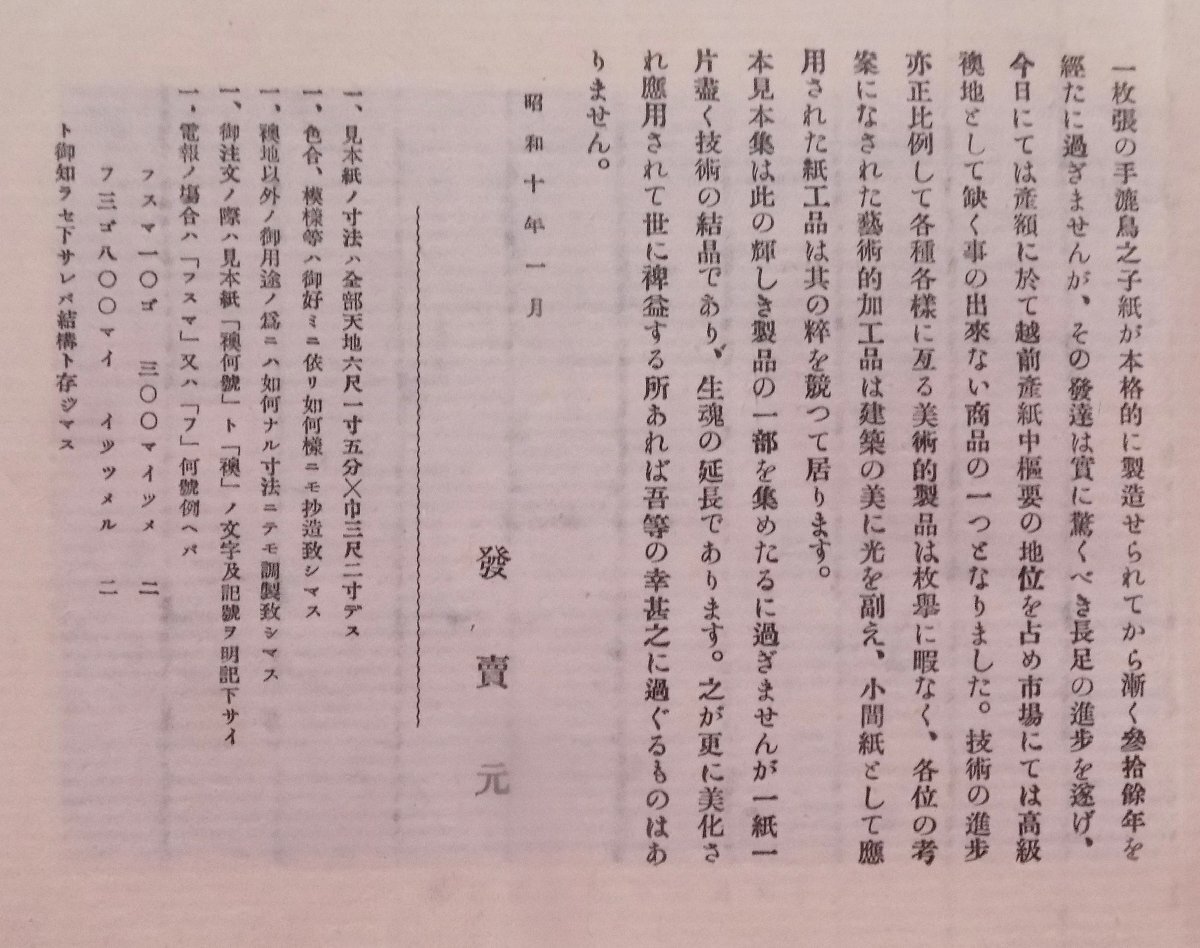 一枚張の手漉鳥之子紙が本格的に製造せられてから漸く參拾餘年を
經たに過ぎませんが、その發達は實に驚くべき長足の進步を遂げ、
今日にては產額に於て越前產紙中樞要の地位を占め市場にては高級
襖地として缺く事の出來ない商品の一つとなりました。技術の進步
亦正比例して各種各樣に亙る美術的製品は枚擧に暇なく、各位の考
案になされた藝術的加工品は建築の美に光を副え、小間紙として應
用された紙工品は其の粹を競つて居ります。
本見本集は此の輝しき製品の一部を集めたるに過ぎませんが一紙一
片盡く技術の結晶であり、生魂の延長であります。之が更に美化さ
れ應用されて世に裨益する所あれば吾等の幸甚之に過ぐるものはあ
りません。
昭和十年一月
發賣元
一、見本紙ノ寸法ハ全部天地六尺一寸五分×巾三尺二寸デス
一、色合、模樣等ハ御好ミニ依リ如何樣ニモ抄造致シマス
一、襖地以外ノ御用途ノ爲ニハ如何ナル寸法ニテモ調製致シマス
一、御注文ノ際ハ見本紙「襖何號」ト「襖」ノ文字及記號ヲ明記下サイ
一、電報ノ塲合ハ「フスマ」又ハ「フ」何號例ヘバ
フスマ一〇ゴ 三〇〇マイツメ 二
フ三ゴ八〇〇マイ イツツメル 二
ト御知ラセ下サレバ結構ト存ジマス